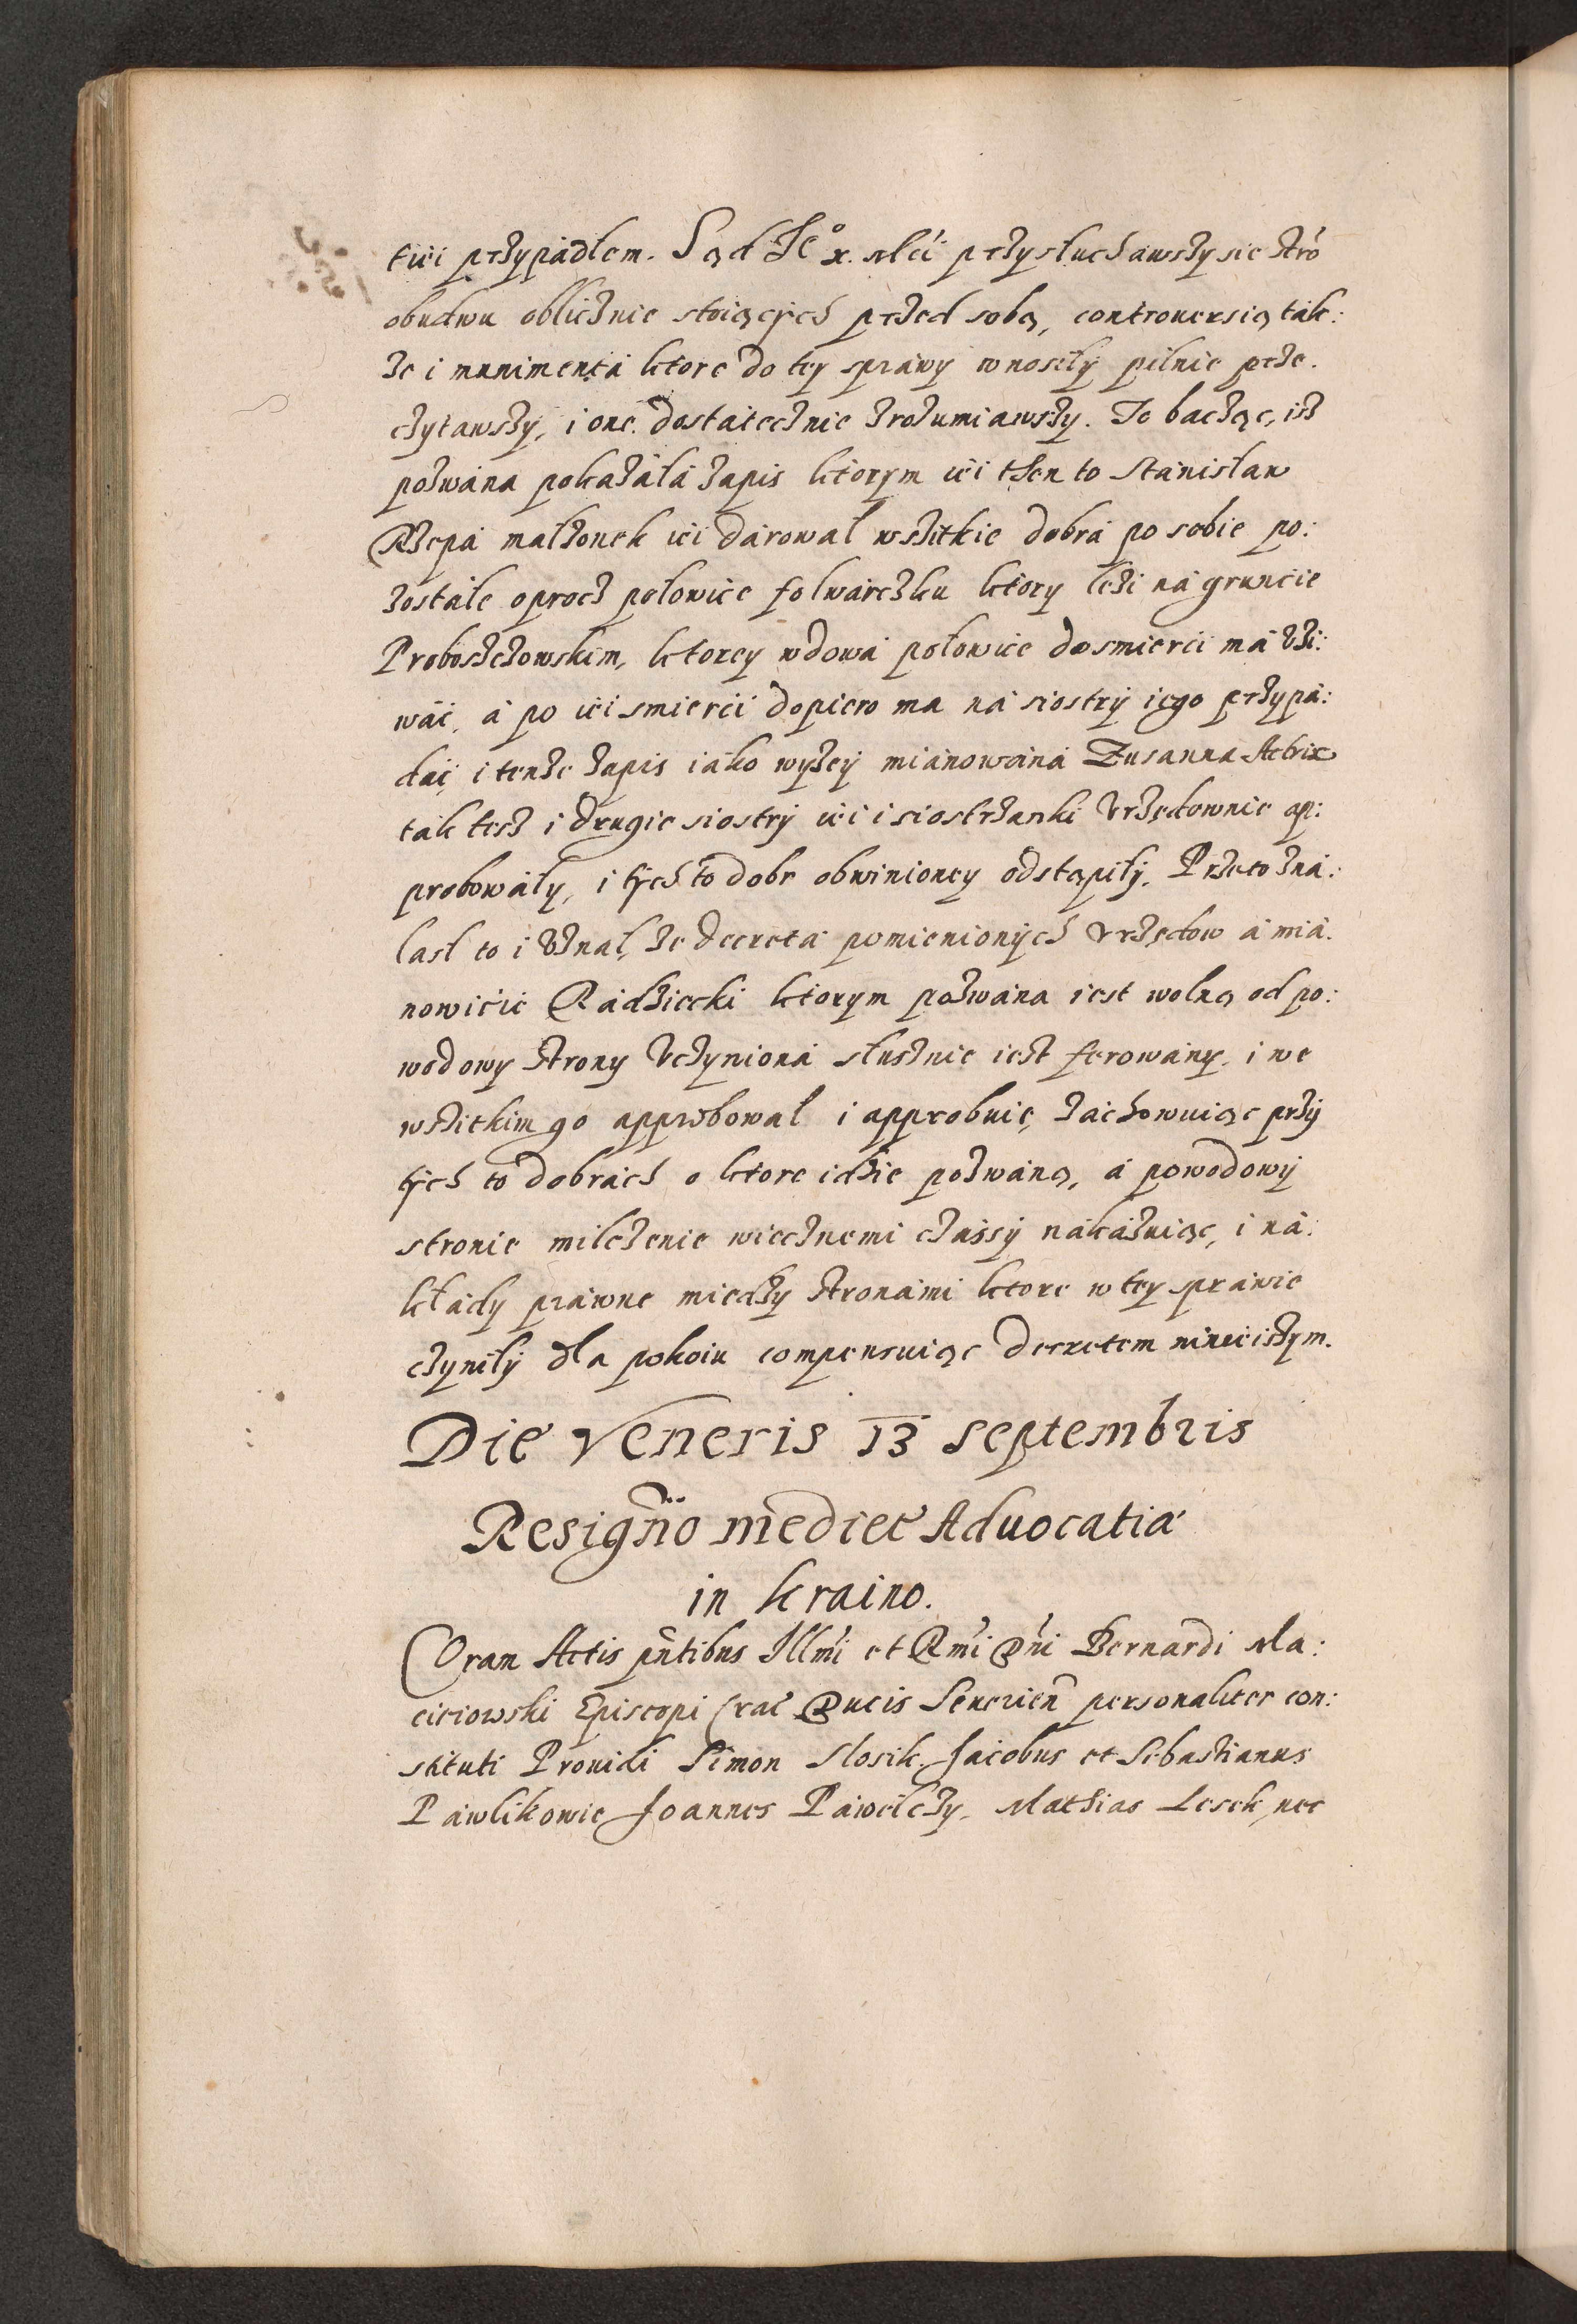 tui przypadłem. Sąd Je° x. Mci przysłuchawszy sie stro
obudwu oblicznie stoiących przed sobą, controuersią tak:
że i munimenta ktore do tey sprawy wnosiły pilnie prze:
czytawszy, i one dostatecznie zrozumiawszy. To bacząc, isz
pozwana pokazała zapis ktorym iei then to Stanisław
Rzepa małżonek iei darował wszitkie dobra po sobie po:
zostałe oprocz połowice folwarczku ktory leżi na gruncie
Proboszczowskim, ktorey wdowa połowice do smierci ma vżi:
wać, a po iei smierci dopiero ma na siostry iego przypa:
dać, i tenże zapis iako wyżey mianowana Zusanna Actrix
tak tesz i drugie siostry iei i siostrzanki vrzędownie ap:
probowały, i tych to dobr obwinioney odstąpiły. Przeto zna:
lasł to i vznał, że decreta pomienionych vrzędow a mia:
nowicie Radziecki ktorym pozwana iest wolną od po:
wodowy strony vczyniona słusznie iest ferowany, i we
wszitkim go approbował i approbuie, zachowuiąc przy
tych to dobrach o ktore idzie pozwaną, a powodowy
stronie milczenie wiecznemi czassy nakazuiąc, i na:
kłady prawne miedzy stronami ktore w tey sprawie
czyniły dla pokoiu compensuiąc decretem ninieiszym.
Die Veneris 13 Septembris
Resigño mediet Aduocatia
in Kraino.
Coram Actis pñtibus Illmi et Rmi Dni Bernardi Ma:
cieiowski Episcopi Crac Ducis Seuerień personaliter con:
stituti Prouidi Simon Slosik. Jacobus et Sebastianus
Pawlikowie Joannes Pawelczy. Mathias Lesek, nec